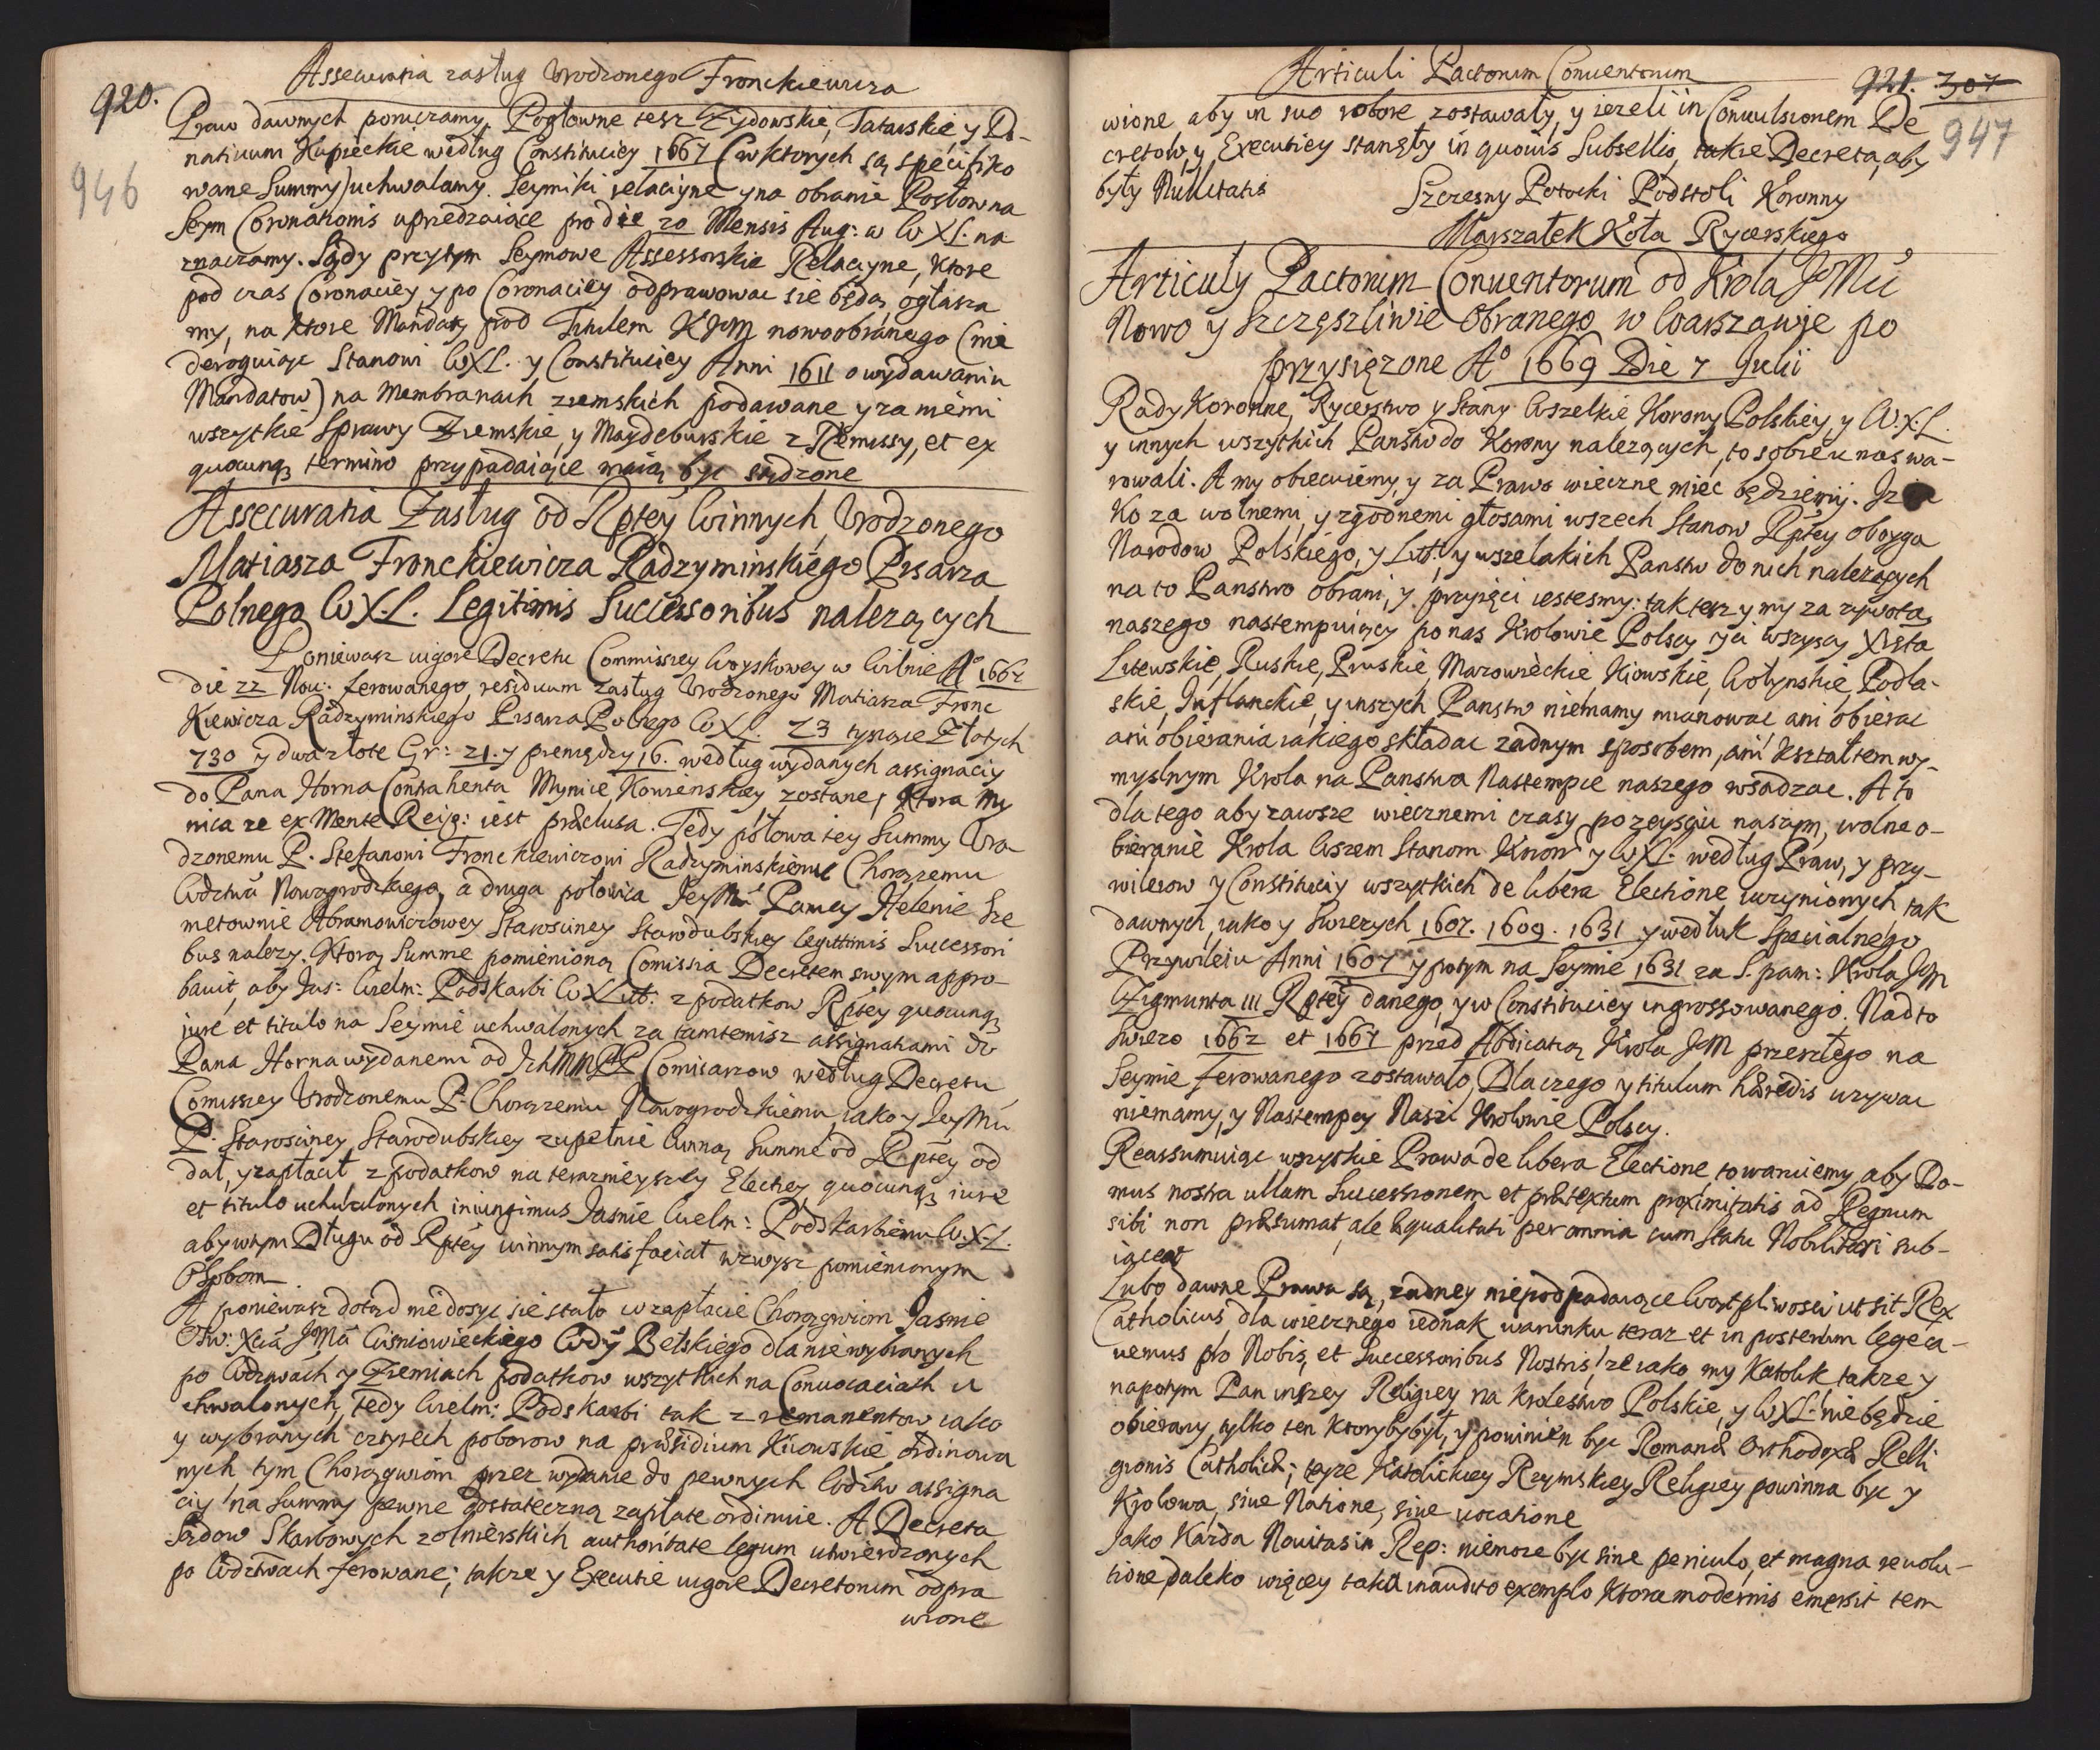 Assecuratia zasług Vrodzonego Fronckiewicza
920.
946
Praw dawnych poruczamy. Pogłowne tesz Zydowskie, Tatarskie, y Do-
natiuum Kupieckie według Constituciey 1667 (w ktorych są specifiko
wane Summy) uchwalamy. Seymiki relacyine y na obranie Posłow na
Seym Coronationis uprzedzaiące pro die 20 Mensis Aug: w W X L. na
znaczamy. Sądy przytym Seymowe Assessorskie Relacyine, ktore
pod czas Coronaciey, y po Coronaciey odprawowac się będą, ogłasza
my, na ktore Mandaty pod Titulem K JM nowoobranego (nie
deroguiąc Stanowi WXL. y Constituciey Anni 1611 o wydawaniu
Mandatow) na Membranach ziemskich podawane y za niemi
wszytkie Sprawy Ziemskie, y Maydeburskie z Remissy, et ex
quocunq termino przypadaiące maią byc sądzone
Assecuratia Zasług od Rptey Winnych, Vrodzonego
Matiasza Fronckiewicza Radzyminskiego Pisarza
Polnego W X. L. Legitimis Successoribus nalezących
Poniewasz uigore Decretu Commissiey Woyskowey w Wilnie A° 1662
die 22 Nou: ferowanego, residuum zasług Vrodzonego Matiasza Fronc
Kiewicza Radzyminskiego Pisarza Polnego W X L. 23 tysiące Złotych
730 y dwa złote Gr: 21. y pieniędzy 16. według wydanych assignaciy
do Pana Horna Contrahenta Mynice Kowienskiey zostaie, ktora My
nica ze ex Mente Reip: iest præclusa. Tedy połowa tey Summy Vro
dzonemu P. Stefanowi Fronckiewiczowi Radzyminskiemu Chorązemu
Wdztwa Nowogrodzkiego, a druga połowica JeyMci Paniey Helenie Sze
metownie Abramowiczowey Starosciney Starodubskiey legitimis Successori
bus nalezy. Ktorą Summe pomienioną Comissia Decretem swym appro-
bauit, aby Jas: Wielm: Podskarbi W X Lit: z podatkow Rptey quocunq
iure et titulo na Seymie uchwalonych za tamtemisz assignatiami do
Pana Horna wydanemi od Ich MM PP Comisarzow według Decretu
Comissiey Vrodzonemu P. Chorązemu Nowogrodzkiemu, iako y JeyMci
P. Starosciney Starodubskiey zupełnie Winną Summe od Rptey od
dał, y zapłacił z podatkow na teraznieyszey Electiey, quocunq iure
et titulo uchwalonych iniungimus Jasnie Wielm: Podskarbiemu W. X. L.
aby w tym Długu od Rptey winnym satisfaciat wzwysz pomienionym
Osobom.
A poniewasz dotąd nie dosyc się stało w zapłacie Chorągwiom Jasnie
Osw: Xcia JMci Wisniowieckiego Wdy Bełskiego dla nie wybranych
po Wdztwach y Ziemiach podatkow wszytkich na Conuocaciach u
chwalonych, tedy Wielm: Podskarbi tak z remanentow iako
y wybranych cztyrech poborow na præsidium Kiiowskie ordinowa
nych tym Chorągwiom przez wydanie do pewnych Wdztw assigna
ciy na Summy pewne dostateczną zapłate ordinuie. A Decreta
Sądow Skarbowych zołnierskich authoritate legum utwierdzonych
po Wdztwach ferowane; takze y Executie uigore Decretorum odpra
wione
Articuli Pactorum Conuentorum
921. 307
947
wione aby in suo robore zostawały, y iezeli in Conuulsionem De
cretow, y Executiey stanęły in quouis Subsellio, takie Decreta, aby
były Nullitatis
Szczesny Potocki Podstoli Koronny
Marszałek Koła Rycerskiego
Articuly Pactorum Conuentorum od Krola JMci
Nowo y Szczęszliwie Obranego w Warszawie po
przysięzone A° 1669 Die 7 Julii
Rady Koronne, Rycerstwo y Stany Wszelkie Korony Polskiey, y W. X. L.
y innych wszytkich Panstw do Korony nalezących, to sobie u nas wa-
rowali. A my obiecuiemy, y za Prawo wieczne miec będziemy. Iz ia
ko za wolnemi, y zgodnemi głosami wszech Stanow Rptey oboyga
Narodow Polskiego, y Lit:, y wszelakich Panstw do nich nalezących
na to Panstwo obrani, y przyięci iestesmy: tak tesz y my za zywota
naszego nastempuiący po nas Krolowie Polscy y ci wszyscy Xięta
Litewskie, Ruskie, Pruskie, Mazowieckie, Kiowskie, Wołynskie, Podla-
skie, Inflanckie, y inszych Panstw niemamy mianowac, ani obierac
ani obierania iakiego składac zadnym sposobem, ani kształtem wy-
myslnym Krola na Panstwa Nastempce naszego wsadzac. A to
dla tego aby zawsze wiecznemi czasy po zeysciu naszym, wolne o-
bieranie Krola Wszem Stanom Koron: y W X L. według Praw, y przy-
wileiow y Constituciy wszytkich de libera Electione uczynionych, tak
dawnych, iako y Swiezych 1607. 1609. 1631 y wedłuk Specialnego
Przywileiu Anni 1607 y potym na Seymie 1631 za S. pam: Krola JM
Zigmunta III Rptey danego, y w Constituciey ingrossowanego. Nad to
Swiezo 1662 et 1667 przed Abdicatią Krola JM przeszłego na
Seymie ferowanego zostawało. Dla czego y titulum hæredis uzywac
niemamy, y Nastempcy Naszi Krolowie Polscy.
Reassumuiąc wszytkie Prawa de libera Electione, to waruiemy, aby Do-
mus nostra ullam Successionem et prætextum proximitatis ad Regnum
sibi non præsumat, ale æqualitati per omnia cum Statu Nobilitari sub-
iaceat
Lubo dawne Prawa są, zadney niepodpadaiące Wątpliwosci ut sit Rex
Catholicus, dla wiecznego iednak warunku teraz et in posterum lege ca-
uemus pro Nobis, et Successoribus Nostris, ze iako my Katolik takze y
napotym Pan inszey Religiey na krolestwo Polskie, y W X L. nie będzie
obierany, tylko ten ktoryby był, y powinien byc Romanæ Orthodoxæ Relli
gionis Catholicæ; teyze Katolickiey Rzymskiey Religiey powinna byc y
Krolowa, siue Natione, siue uocatione
Jako Kazda Nouitas in Rep: niemoze byc sine periculo, et magna reuolu-
tione daleko więcey taka inaudito exemplo ktora modernis emersit tem